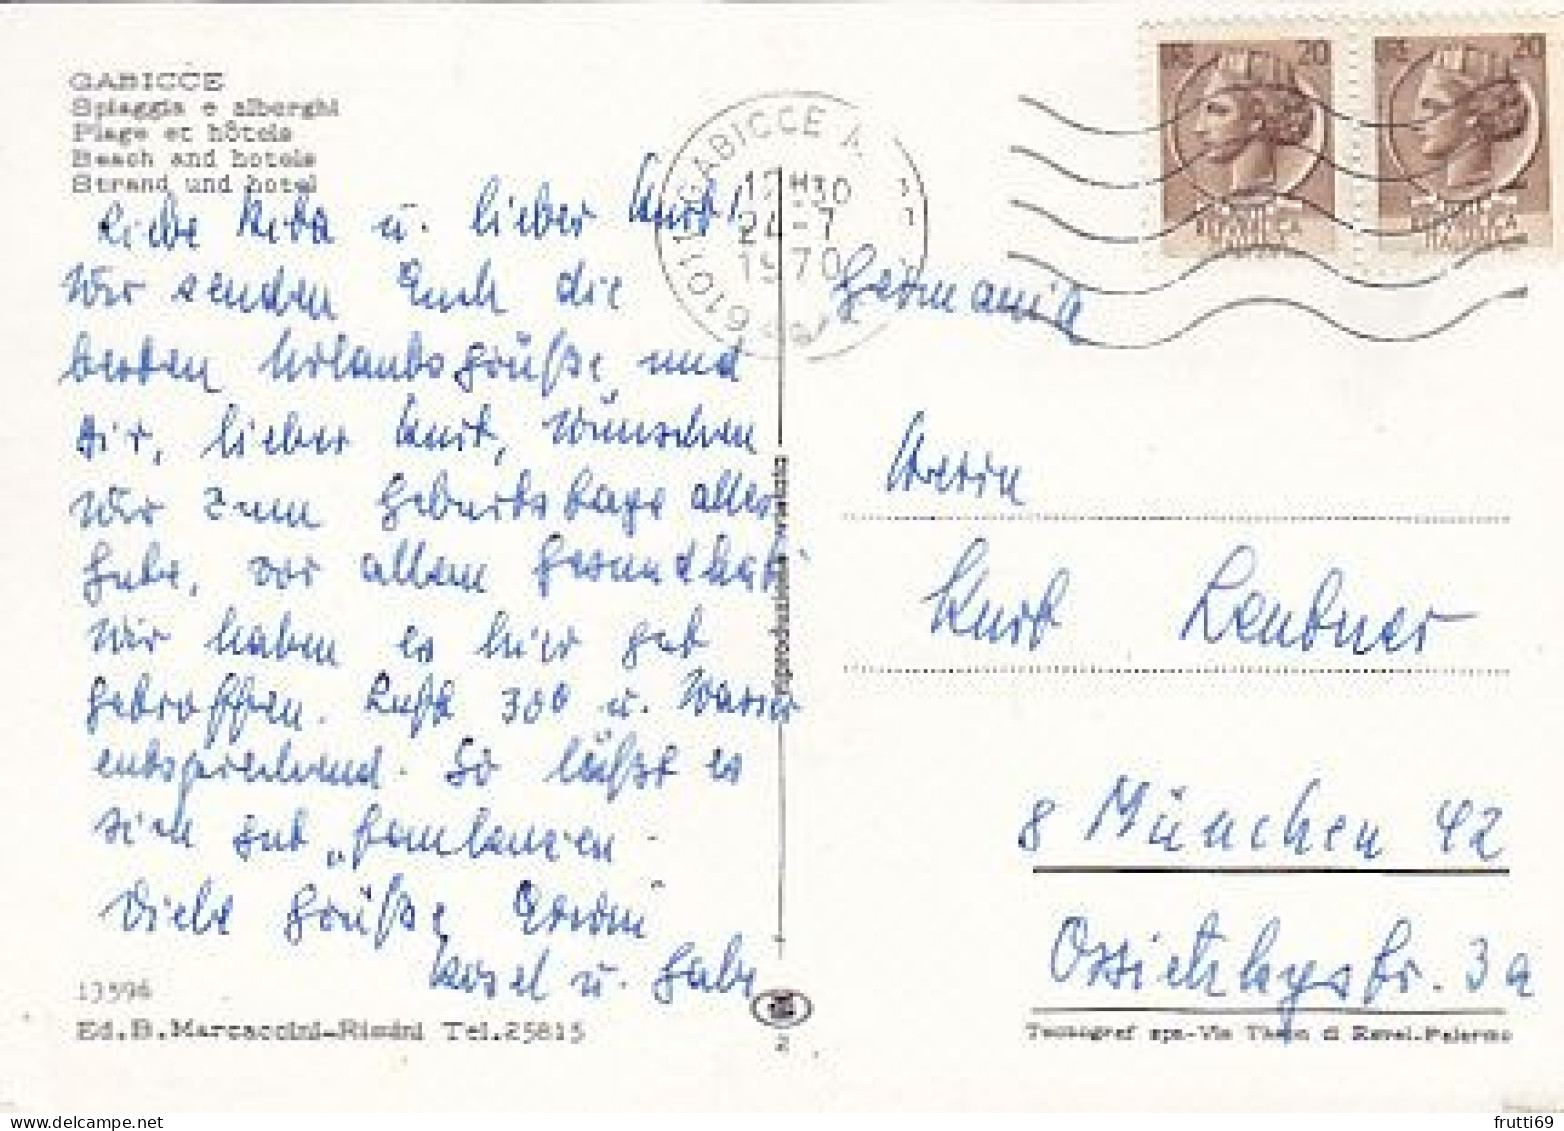 GABICCE
Spiaggia e alberghi
Plage et hôtels
Beach and hotels
Strand und hotel
Liebe Rita u. lieber Kurt!
Wir senden Euch die
besten Urlaubsgrüße und
Dir, lieber Kurt, wünschen
wir zum Geburtstage alles
Gute, vor allem Gesundheit.
Wir haben es hier gut
getroffen. Luft 30° u. Wasser
entsprechend. So läßt es
sich gut „faulenzen“.
Viele Grüße
u. Gabi
13596
Ed.B.Marcaccini-Rimini Tel.25815
riproduzione vietata
2
61011 GABICCE M
12H30
24-7
1970
20
REPUBBLICA
ITALIANA
20
REPUBBLICA
ITALIANA
Germania
Herrn
Kurt Lentner
8 München 42
Ossietzkystr. 3a
Tecnograf spa-Via Thaon di Revel-Palermo
frutti69